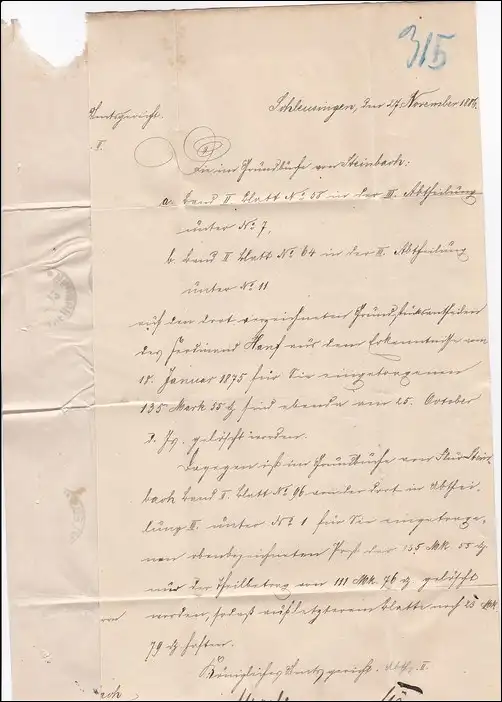 315
Schleusingen, den 27. November 1886.
Amtsgericht.
II.
Die im Grundbuche von Steinbach:
a. Band II Blatt No 58 in der III. Abtheilung
unter No 7,
b. Band II Blatt No 64 in der III. Abtheilung
unter No 11
auf den dort verzeichneten Grundstücksantheilen
des Ferdinand Hanf aus dem Erkenntnisse vom
Januar 1875 für Sie eingetragenen
135 Mark 55 ₰ sind ebenda am 25. October
d. Js. gelöscht worden.
Dagegen ist im Grundbuche von Stein-
bach Band I. Blatt No 96 von der dort in Abthei-
lung III. unter No 1 für Sie eingetrage-
nen obenbezeichneten Post der 135 Mk. 55 ₰
nur der Theilbetrag von 111 Mk. 76 ₰ gelöscht
worden, sodaß auf letzterem Blatte noch 23 Mk.
79 ₰ haften.
Königliches Amtsgericht. Abth. II.